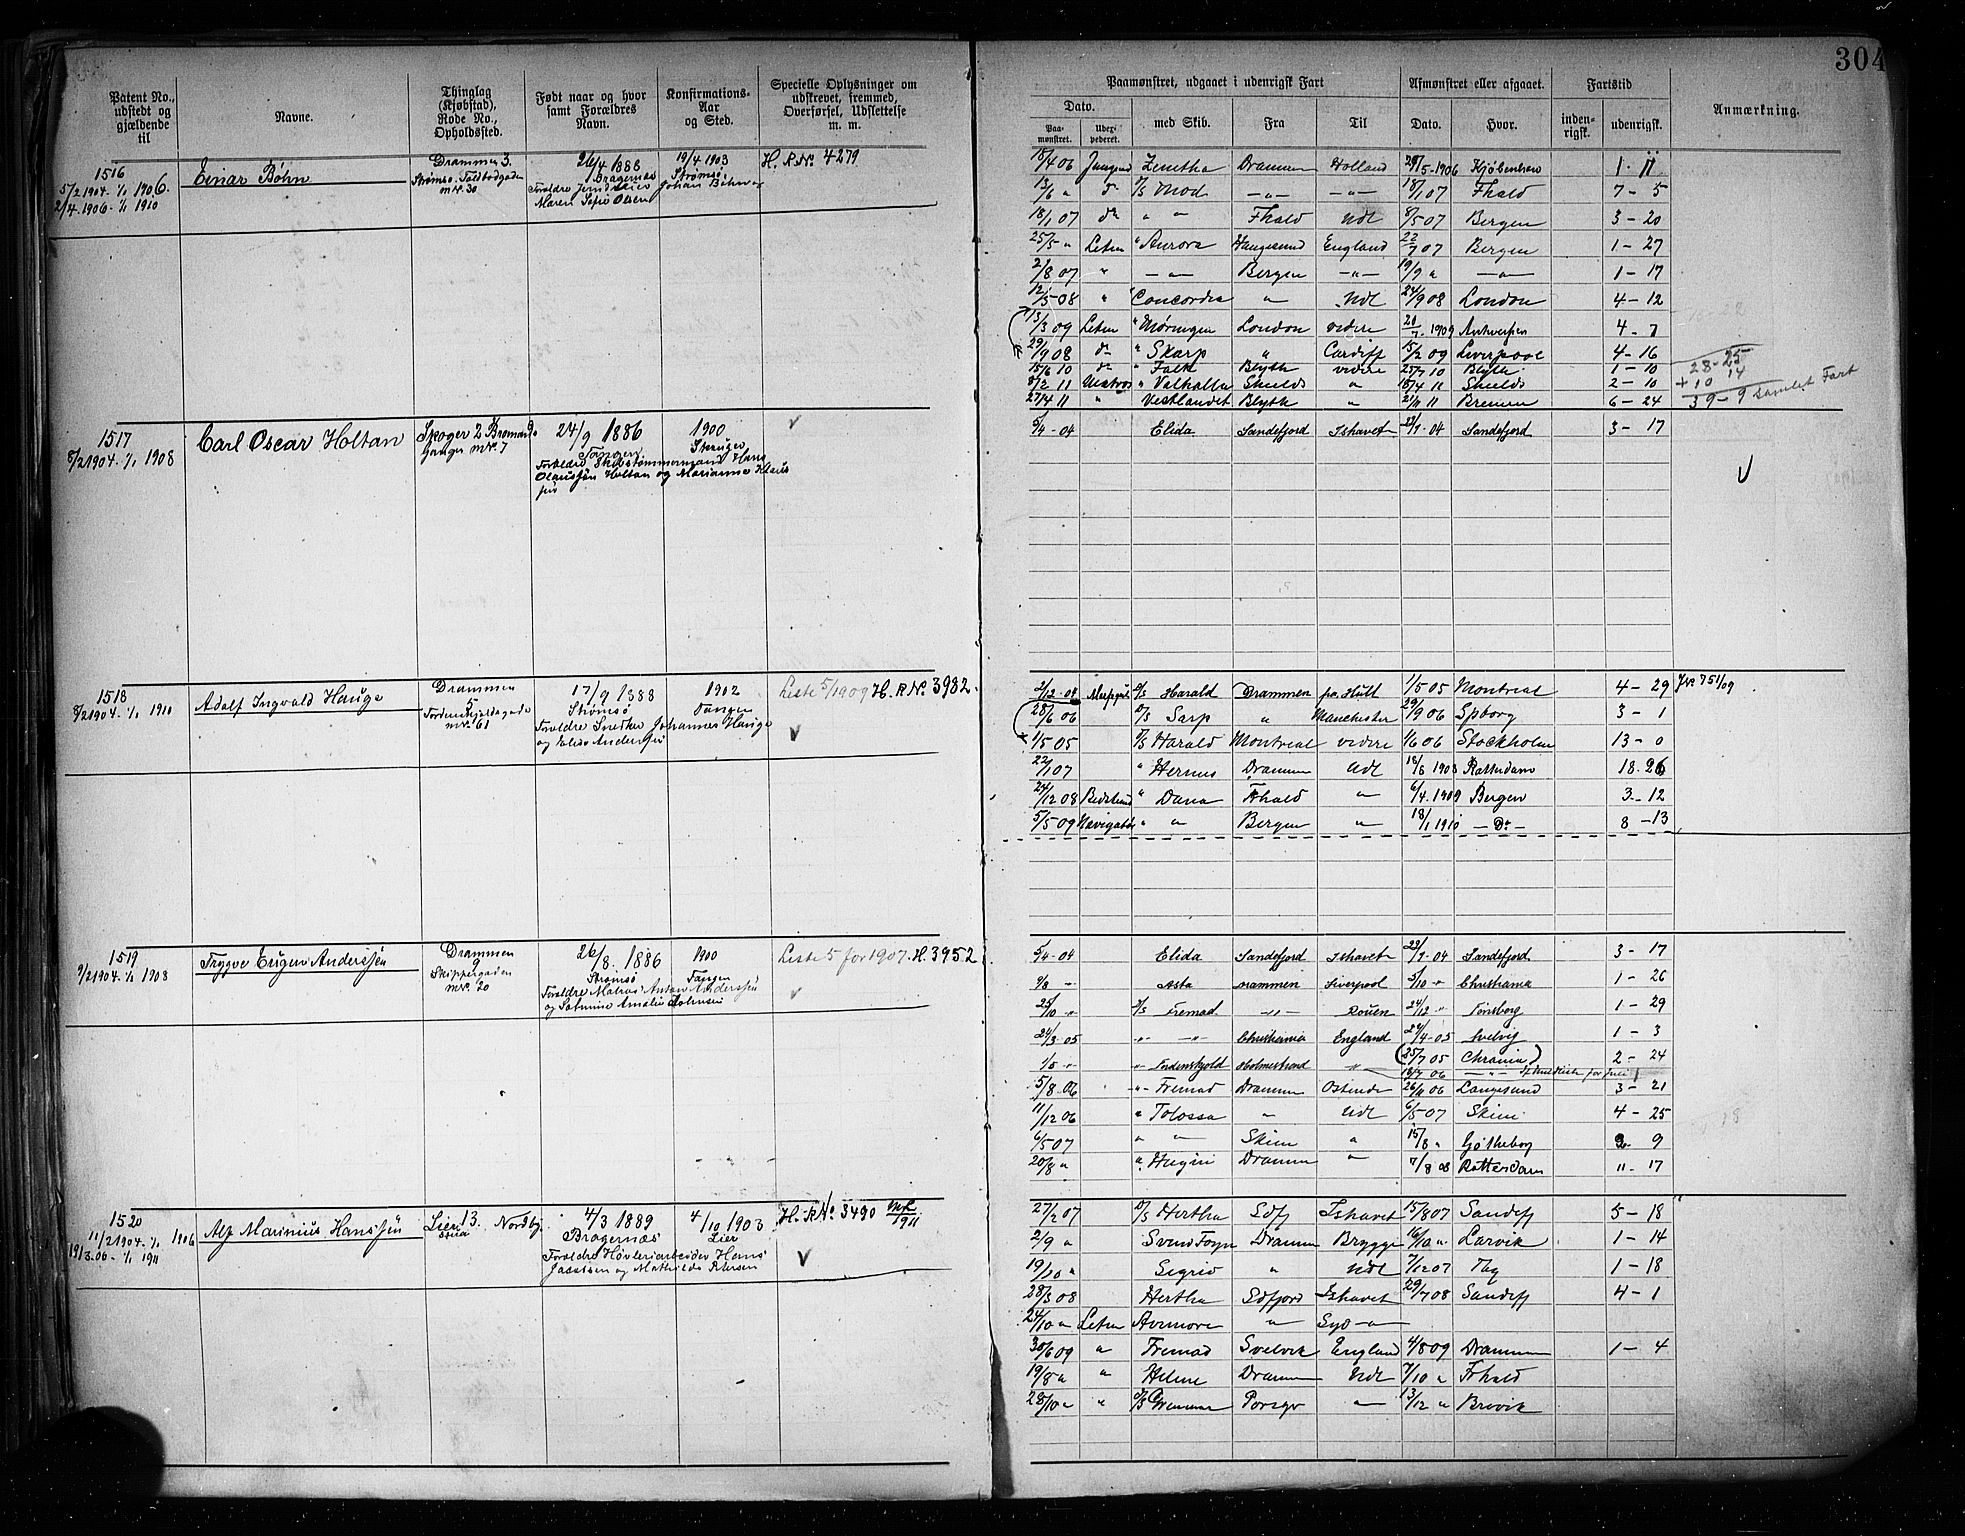 304
Patent No., udstedt og gjældende til
Navne.
Thinglag (Kjøbstad), Rode No., Opholdssted.
Født naar og hvor samt Forældres Navn.
Konfirmations-Aar og Sted.
Specielle Oplysninger om udskrevet, fremmed, Overførsel, Udslettelse m. m.
Paamønstret, udgaaet i udenrigsk Fart
Afmønstret eller afgaaet.
Fartstid
Anmærkning.
Dato.
Paa-mønstret.
med Skib.
Fra
Til
Dato.
Hvor.
inden-rigsk.
udenrigsk.
1516
5/2 1904. 1/1 1906.
2/4. 1906. 1/1 1910
Einar Bøhn
Drammen 3.
Strømsø. Toldbodgaden
m. Nr. 30
26/4 1888
Bragernæs
Maren Sofie Olsen
19/4 1903
Strømsø.
Johan Bøhn og
H. R. No. 4279
15/4 06 Zenitha Drammen Holland 29/5-1906 Kjøbenhavn 1 - 11
13/6 " D/S Mod -"- -"- 18/1 07 Fhald 7 - 5
18/1 07 do " " Fhald Udl 8/5 07 Bergen 3 - 20
25/5 " Letm " Aurora Haugesund England 22/7 07 Bergen 1 - 27
2/8 07 " -"- Bergen -"- 19/9 " -"- 1 - 17
12/5 08 " " Concordia " Udl 24/9 08 London 4 - 12
13/3 09 Letm " Møringen London videre 20/7. 1909 Antwerpen 4 - 7
29/9 08 do " Skarp " Cardiff 15/2 09 Liverpool 4 - 16
15/6 10 do " Falk Blyth videre 25/7 10 Blyth 1 - 10
8/2 11 Matros " Valhalla Shields " 18/4 11 Shields 2 - 10
27/4 11 " " Vestlandet Blyth " 21/11 11 Bremen 6 - 24
28 - 25
+ 10 14
39 - 9 samlet Fart
1517
8/2 1904. 1/1 1908
Carl Oscar Holtan
Skoger 2
m Nr. 7
24/9 1886
Tangen
Forældre Skibstømmermand Hans
Olaussen Holtan og Marianne Klaus
sen
1900
Skouger
5/4 - 04 Elida Sandefjord Ishavet 21/9 - 04 Sandefjord 3 - 17
1518
8/2 1904. 1/1 1910
Adolf Ingvald Hauge
Drammen
5
Tordenskjoldsgade
m Nr. 61
17/9 1888
Strømsø
Forældre Snedker Johannes Hauge
og Elise Andersen
1902
Tangen
Liste 5/1909 H. R. No. 3982.
2/12 - 04 D/S Harald Drammen pr. Hull 1/5 05 Montreal 4 - 29 Jr. 751/09
28/6 06 D/S Sarp " Manchester 29/9 06 Spborg 3 - 1
1/5 05 D/S Harald Montreal videre 1/6 06 Stockholm 13 - 0
22/1 07 " Hermes Drammen Udl 18/8 1908 Rotterdam 18. 26
24/12 08 Bedstmd " Dana Fhald " 6/4. 1909 Bergen 3 - 12
5/5 09 Navigatør " " Bergen " 18/1 1910 - Do - 8 - 13
1519
9/2 1904. 1/1 1908
Trygve Eugen Anderssen
Drammen
9
Skippergaden
m Nr. 20
26/8. 1886
Strømsø
Forældre Matros Anton Anderssen
og Amalie Johnsen
1900
Tangen
Liste 5 for 1907. H. 3952
5/4 - 04 Elida Sandefjord Ishavet 22/9 - 04 Sandefjord 3 - 17
9/8 - Asta Drammen Liverpool 5/10 -"- Christiania 1 - 26
25/10 -"- D/S Fremad -"- Rouen 24/12 -"- Tønsberg 1 - 29
24/3 - 05 -"- -"- Christiania England 28/4 - 05 Svelvig 1 - 3
1/5 -"- -"- Indenskjold Holmestrand -"- (25/7 05 Chrania) 2 - 24
5/8. 06 -"- Fremad Drammen Ostende 26/11 06 Langesund 3 - 21
11/12 06 " Tolossa " Udl 6/5 07 Skien 4 - 25
6/5 07 " " Skien " 15/8 " Gøtheborg 3 - 9
20/8 " " Hugin Drammen " 7/8 08 Rotterdam 11 - 17
1520
11/2 1904. 1/1 1906
19/3. 06 - 1/1 1911
Alf Marinius Hanssen
Lier 13. Nordby
4/3 1889
Bragernæs
Forældre Høvleriarbeider Hans
Jacobsen og Mathilde Petersen
4/10 1903
Lier
H. R No. 3490 1911
27/2 07 D/S Hertha Sdfj Ishavet 15/8 07 Sandefj 5 - 18
2/9 " Svend Foyn Drammen Brygge 16/10 " Larvik 1 - 14
19/10 " Sigrid " Udl 7/12 07 Tbg 1 - 18
28/3 08 Hertha Sdfjord Ishavet 29/7 08 Sandefj 4 - 1
24/10 " Letm Avimore " Syd -"-
30/6 09 " Fremad Svelvik England 4/8 09 Drammen 1 - 4
19/8 " " Helene Drammen Udl 7/10 " Frhald
28/10 " " Porsgr " 13/12 " Brevik